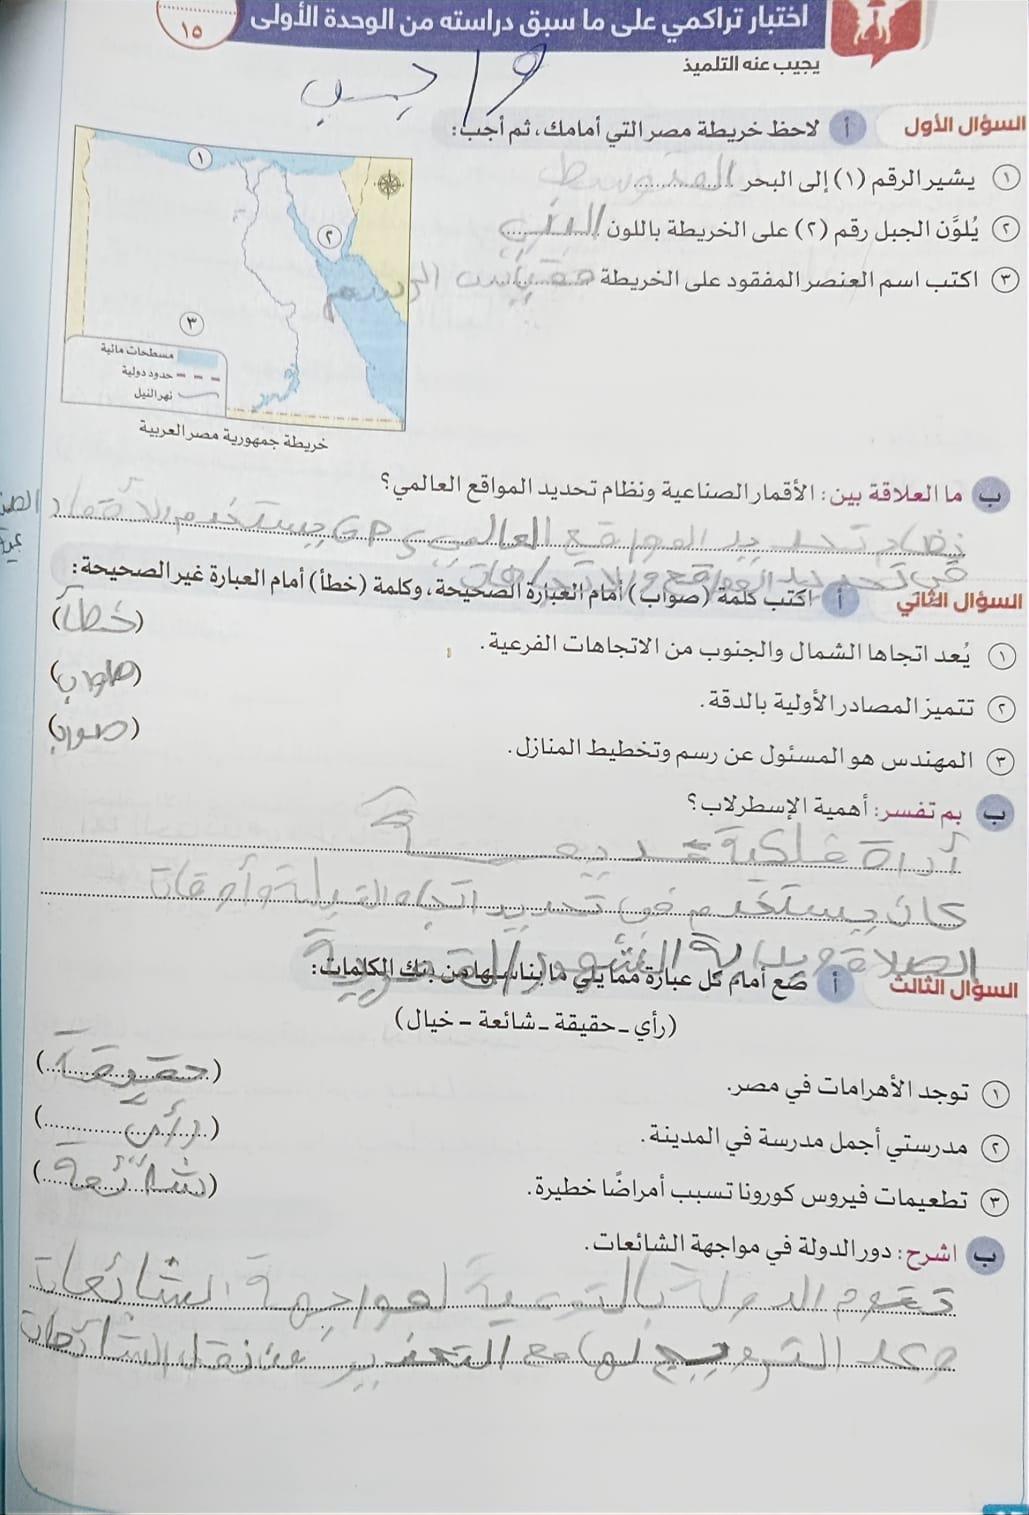 اختبار تراكمي على ما سبق دراسته من الوحدة الأولى
١٥
يجيب عنه التلميذ
واجب
السؤال الأول أ لاحظ خريطة مصر التي أمامك، ثم أجب:
١ يشير الرقم (١) إلى البحر المتوسط
٢ يُلوَّن الجبل رقم (٢) على الخريطة باللون البني
٣ اكتب اسم العنصر المفقود على الخريطة مقياس الرسم
١
٢
٣
مسطحات مائية
حدود دولية
نهر النيل
خريطة جمهورية مصر العربية
ب ما العلاقة بين: الأقمار الصناعية ونظام تحديد المواقع العالمي؟
نظام تحديد المواقع العالمي GPS يستخدم الأقمار
في تحديد المواقع والاتجاهات
السؤال الثاني أ اكتب كلمة (صواب) أمام العبارة الصحيحة، وكلمة (خطأ) أمام العبارة غير الصحيحة:
١ يُعد اتجاها الشمال والجنوب من الاتجاهات الفرعية. (خطأ)
٢ تتميز المصادر الأولية بالدقة. (صواب)
٣ المهندس هو المسئول عن رسم وتخطيط المنازل. (صواب)
ب بم تفسر: أهمية الإسطرلاب؟
أداة فلكية قديمة
كان يستخدم في تحديد اتجاه القبلة وأوقات
الصلاة وبداية الشهور الهجرية
السؤال الثالث أ ضع أمام كل عبارة مما يلي ما يناسبها من بنك الكلمات:
(رأي - حقيقة - شائعة - خيال)
١ توجد الأهرامات في مصر. (حقيقة)
٢ مدرستي أجمل مدرسة في المدينة. (رأي)
٣ تطعيمات فيروس كورونا تسبب أمراضًا خطيرة. (شائعة)
ب اشرح: دور الدولة في مواجهة الشائعات.
تقوم الدولة بالتوعية لمواجهة الشائعات
وعد الترويج لها مع التحذير من نقل الشائعات